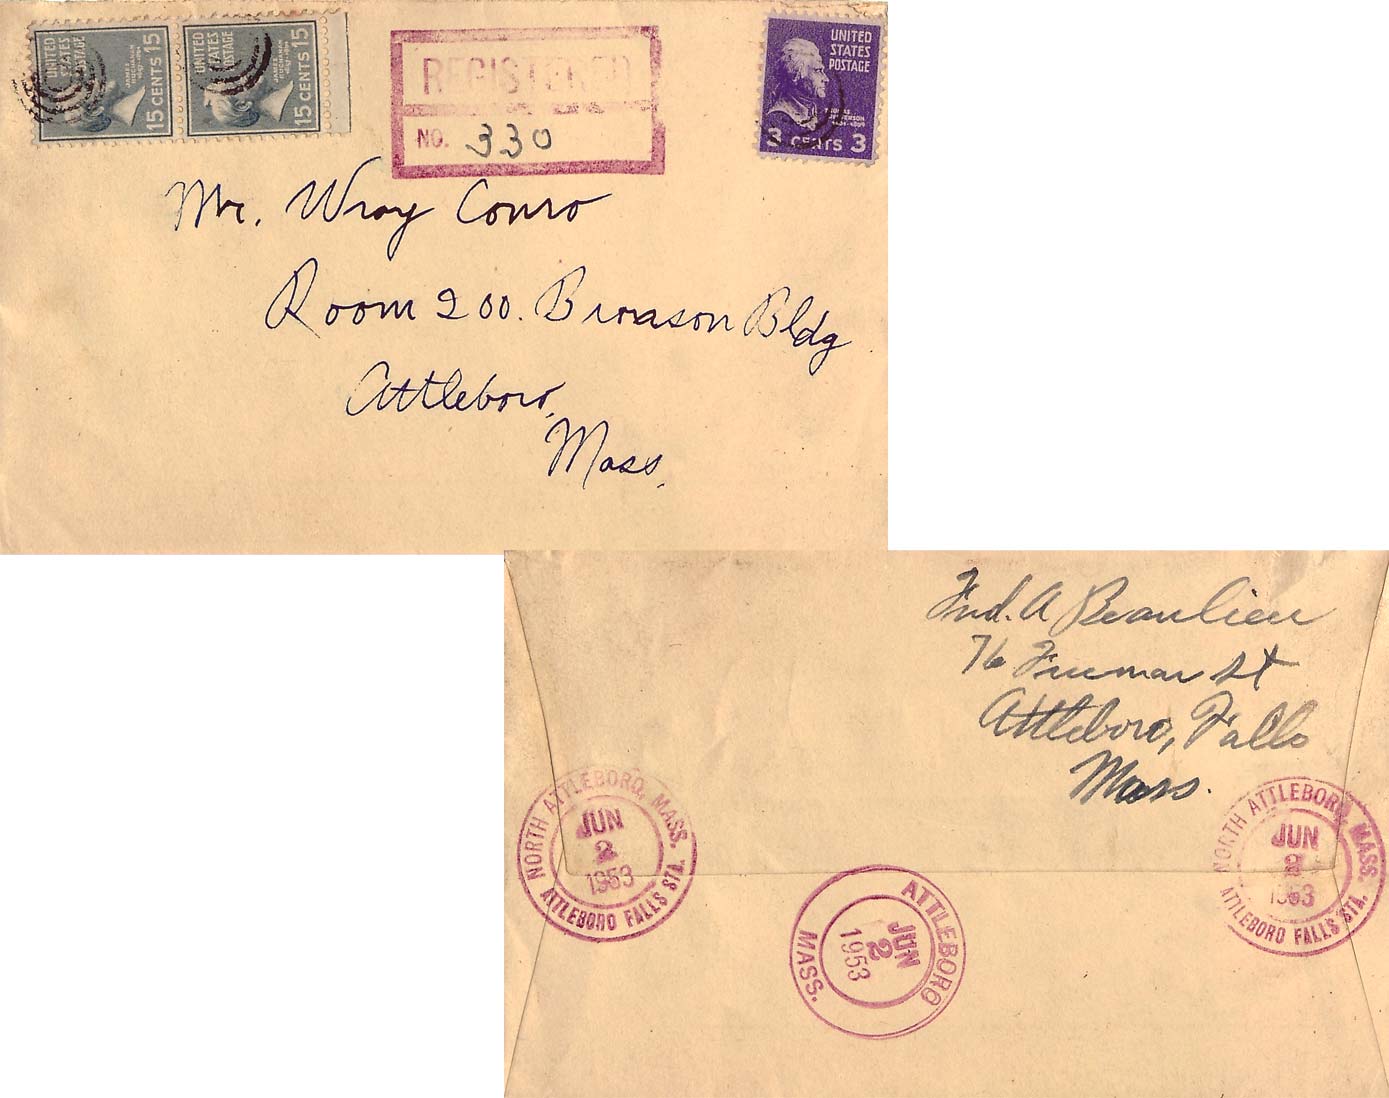 UNITED
STATES
POSTAGE
JAMES
BUCHANAN
1857-1861
15 CENTS 15
UNITED
STATES
POSTAGE
JAMES
BUCHANAN
1857-1861
15 CENTS 15
REGISTERED
NO. 330
UNITED
STATES
POSTAGE
THOMAS
JEFFERSON
1801-1809
3 CENTS 3
Mr. Wray Conro
Room 200. Bronson Bldg
Attleboro,
Mass.
Fred. A Beaulieu
76 Freeman St
Attleboro, Falls
Mass.
NORTH ATTLEBORO, MASS.
JUN
2
1953
ATTLEBORO FALLS STA.
ATTLEBORO
JUN
2
1953
MASS.
NORTH ATTLEBORO, MASS.
JUN
2
1953
ATTLEBORO FALLS STA.